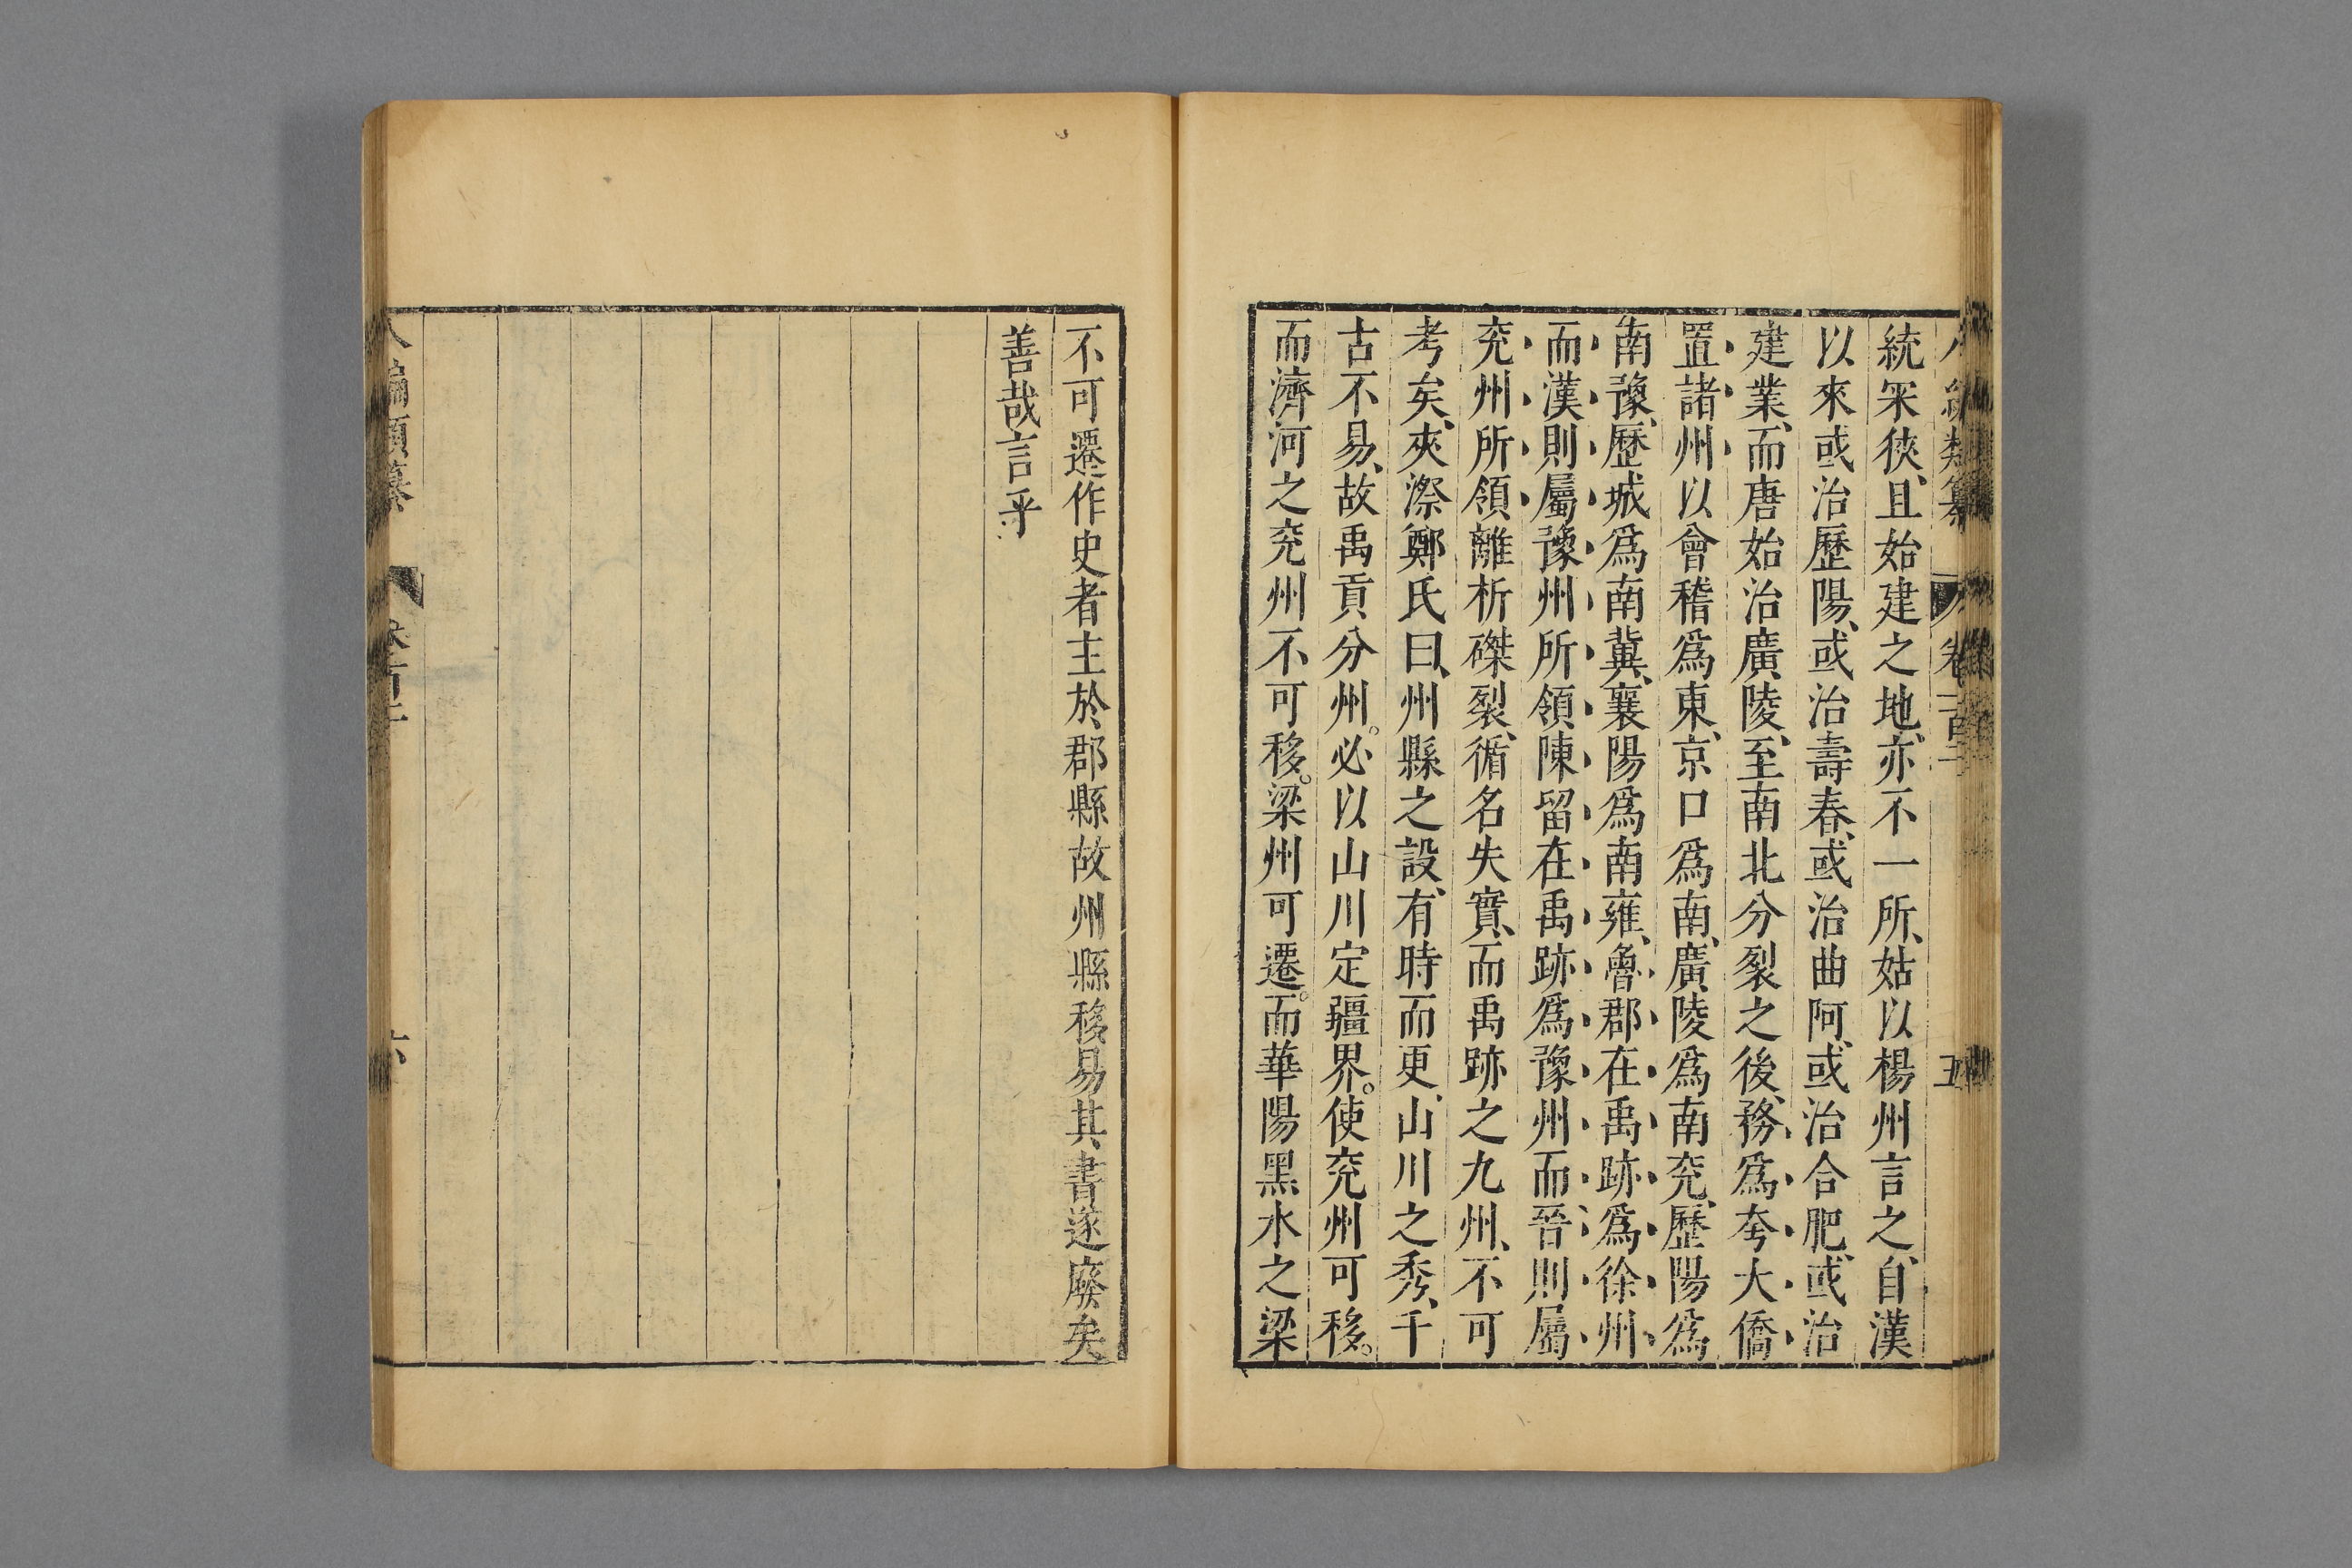 統罙狹、且始建之地、亦不一所、姑以楊州言之、自漢
以來或治歷陽、或治壽春、或治曲阿、或治合肥、或治
建業、而唐始治廣陵、至南北分裂之後、務爲夸大僑
置諸州以會稽爲東、京口爲南、廣陵爲南兖、歷陽爲
南豫、歷城爲南冀、襄陽爲南雍、魯郡在禹跡爲徐州
而漢則屬豫州所領陳留在禹跡爲豫州而晉則屬
兖州所領離析磔裂、循名失實、而禹跡之九州、不可
考矣、夾漈鄭氏曰、州縣之設、有時而更、山川之秀、千
古不易、故禹貢分州。必以山川定疆界。使兖州可移。
而濟河之兖州不可移。梁州可遷。而華陽黑水之梁
不可遷作史者主於郡縣故州縣移易其書遂廢矣
善哉言乎